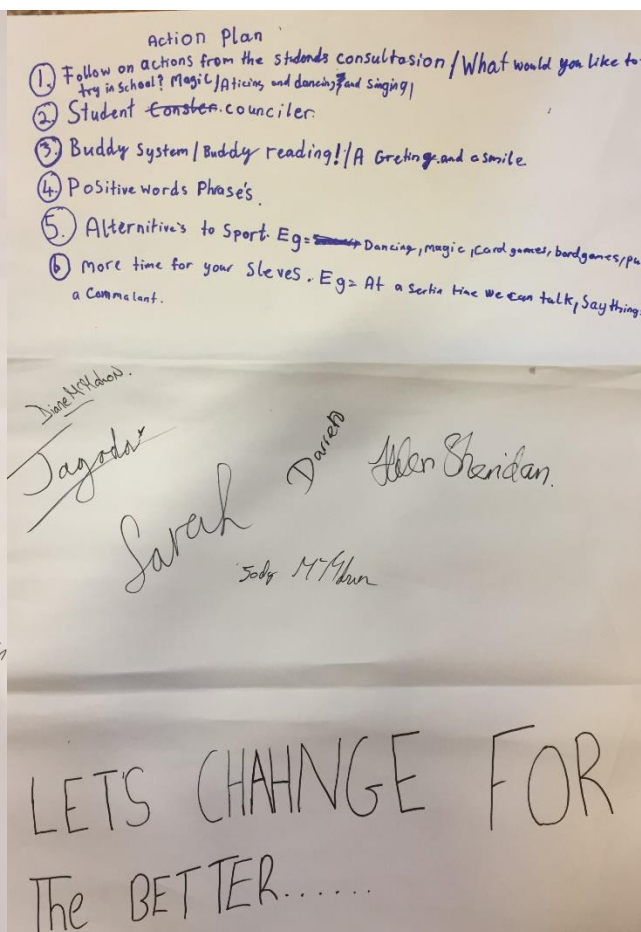 Action Plan
1. Follow on actions from the students consultasion / What would you like to
try in school? Magic / Aticing and dancing and singing
2. Student counciler.
3. Buddy System / Buddy reading! / A Greting and a smile
4. Positive words Phrase's.
5. Alternitive's to Sport. Eg= Dancing, magic, Card games, bordgames, pu
6 More time for your Sleves. Eg= At a sertin time we can talk, Say things
a Commalant.
Diane McMahon.
Jagoda
Darren
Helen Sheridan.
Sarah
LET'S CHAHNGE FOR
The BETTER......